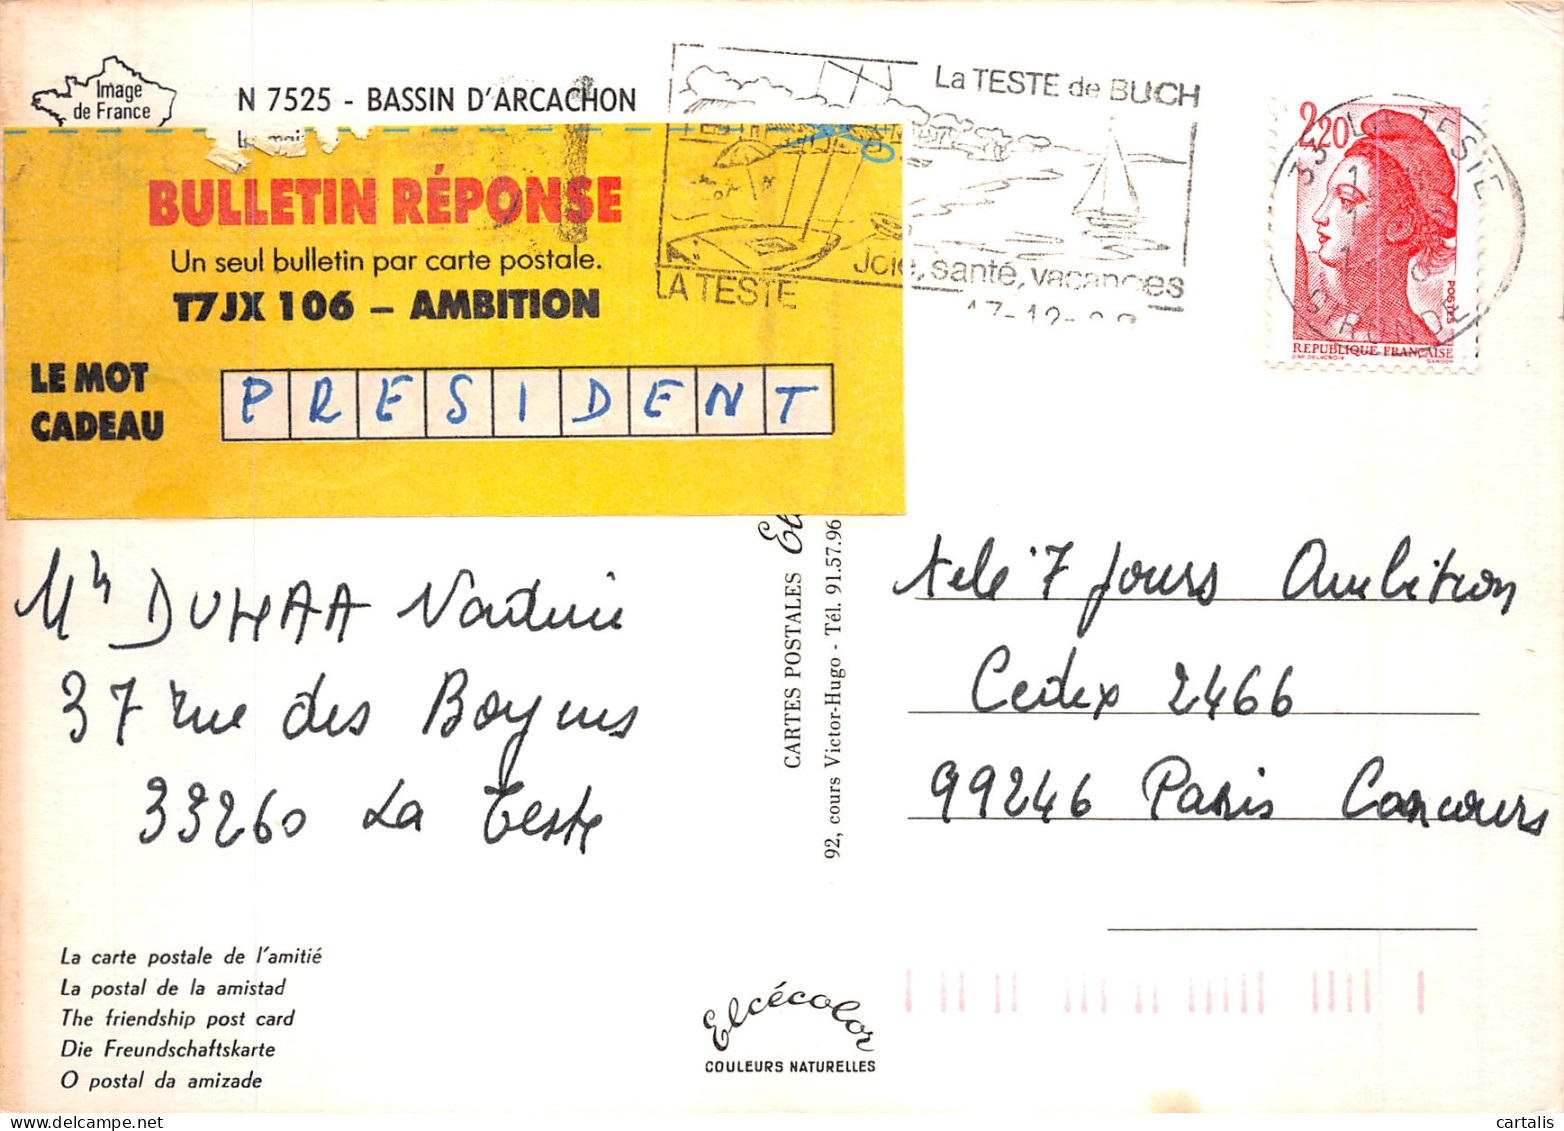 Image
de France
N 7525 - BASSIN D'ARCACHON
BULLETIN RÉPONSE
Un seul bulletin par carte postale.
T7JX 106 – AMBITION
LE MOT
CADEAU
PRESIDENT
La TESTE de BUCH
Joie, santé, vacances
LA TESTE
33 LA TESTE
GIRONDE
2,20
POSTES
REPUBLIQUE FRANÇAISE
GANDON
DUHAA
37 rue des Boyens
33260 La Teste
télé 7 jours Ambition
Cedex 2466
99246 Paris Concours
CARTES POSTALES
92, cours Victor-Hugo - Tél. 91.57.96
La carte postale de l'amitié
La postal de la amistad
The friendship post card
Die Freundschaftskarte
O postal da amizade
Elcécolor
COULEURS NATURELLES
cartalis